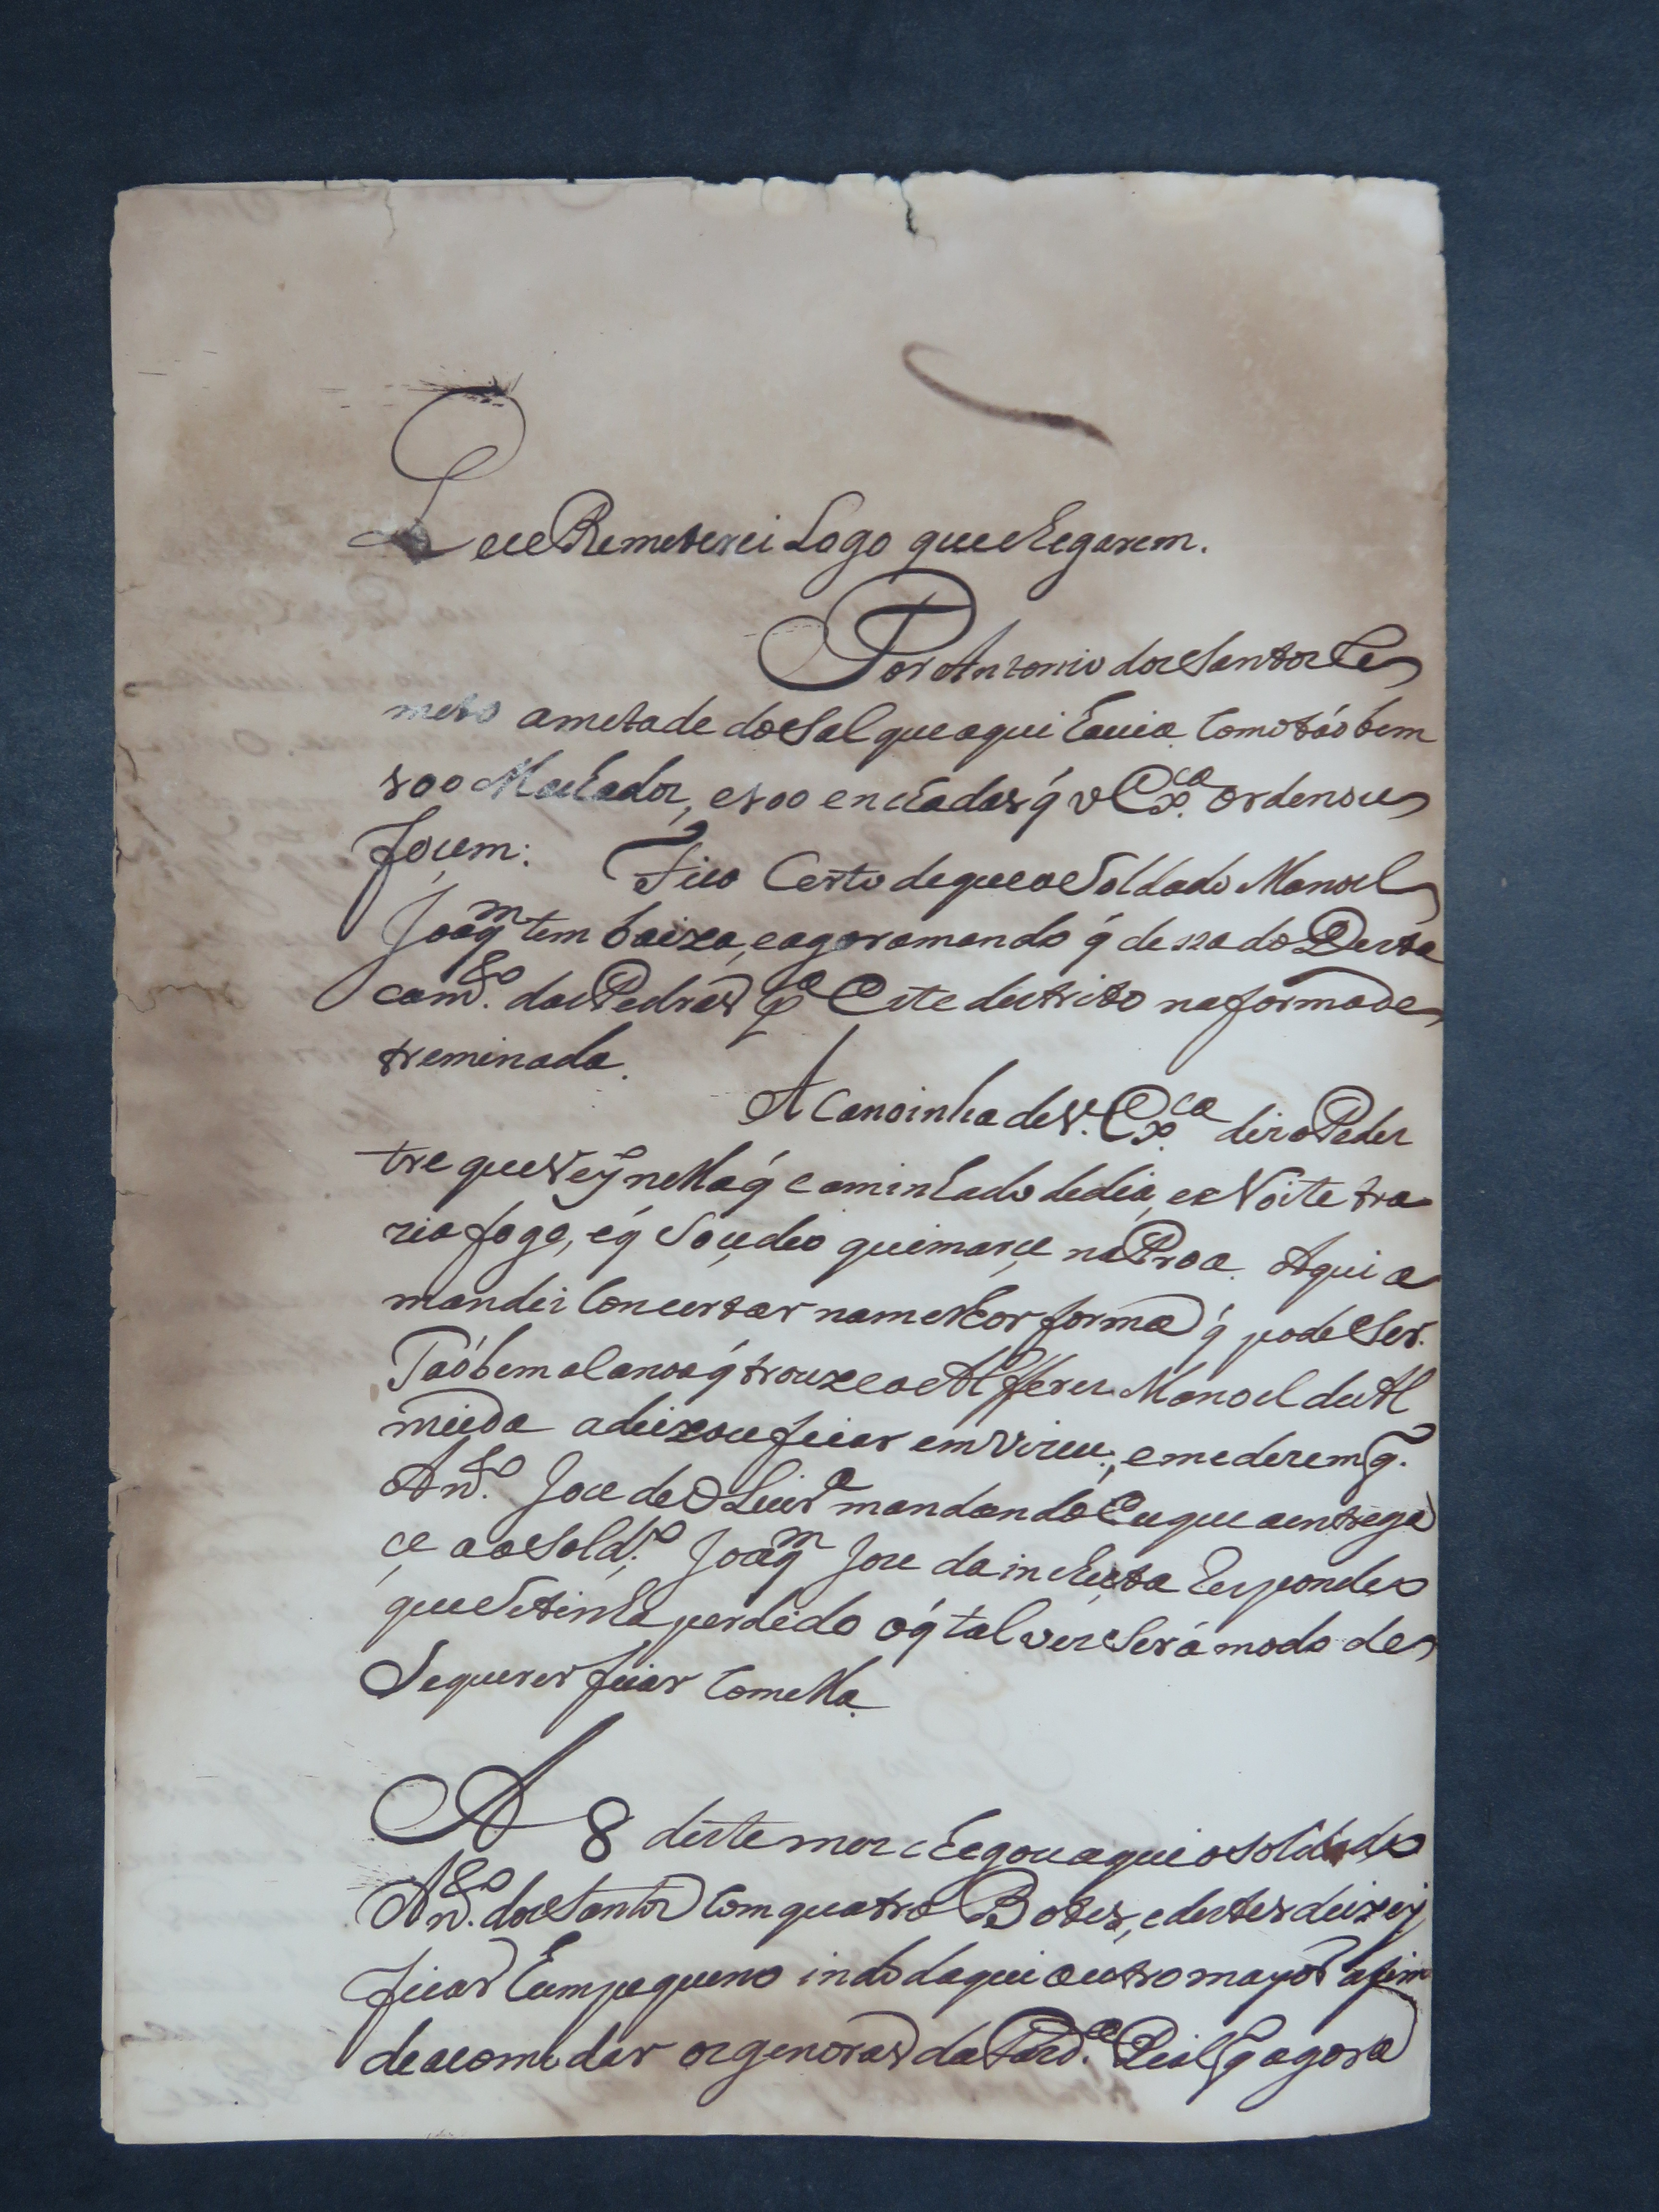 Lue Remeterei Logo que chegarem.
Por Antonio dos Santos Re
meto ametade do Sal que aqui havia. Como táobem
100 Machados, e 100 enchadas q̃ v Ex.ca Ordenou
foçem: Fico Certo de que o Soldado Manoel
Joaq.m tem baixa, e agora mando q̃ dessa do Desta
cam.to das Pedras p.a Este destrito na forma de
treminada.
A Canoinha de V. Ex.ca diz o Pedes
tre que veyo nella q̃ caminhado de dia, e a Noite tra
zia fogo, e q̃ Soçedeo queimarçe na Proa. Aqui a
mandei Concertar na melhor forma q̃ pode Ser.
Taóbem a Canoa q̃ trouxe o Alfferes Manoel de Al
meida a deixou ficar em Vizeu, e me dizem q.
An.to Joze de Oliur.a mandando Eu que a entrega
çe ao Sold.o Joaq.m Joze da incheta Respondeo
que Se tinha perdido o q̃ tal vez Será modo de
Se querer ficar Com ella.
A 8 deste mez chegou aqui o soldado
An.to dos Santos Com quatro Botes, e destes deixey
ficar hum pequeno indo daqui outro mayor afim
de acomodar os generos da Fazd.a Real q̃ agora